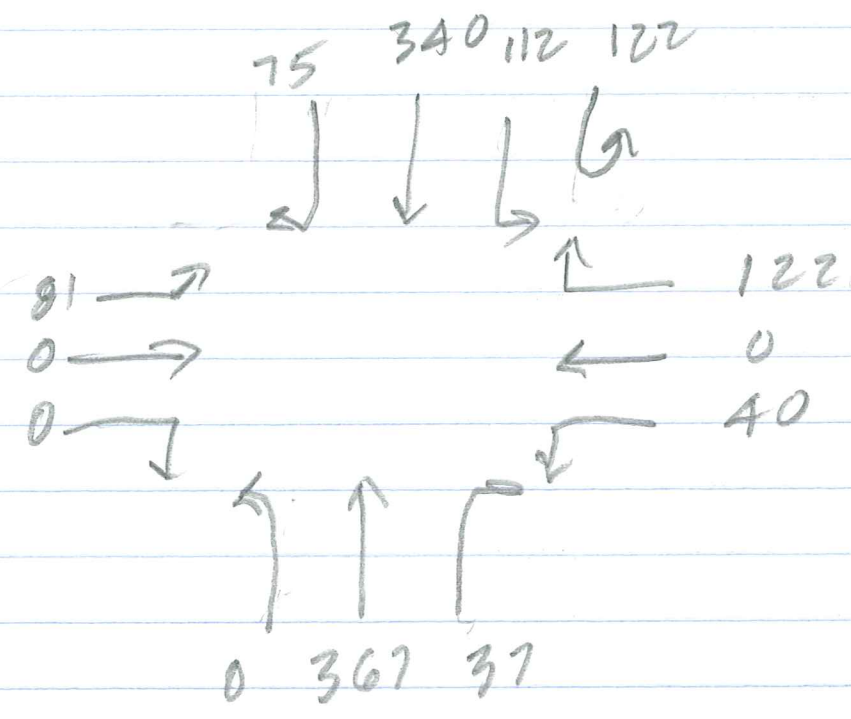 75 340 112 122
81 122
0 0
0 40
0 367 37